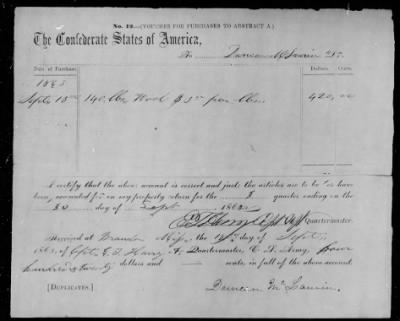 No. 12.—(VOUCHER FOR PURCHASES TO ABSTRACT A.)
The Confederate States of America,
To Duncan McLaurin Dr.
Date of Purchase. Dollars. Cents.
1863
Sept 15th 140 Wood $3 per 420,00
I certify that the above account is correct and just; the articles are to be or have
been, accounted for on my property return for the quarter ending on the
30 day of Sept 1863.
Quartermaster.
Received at Brandon Miss, the day of Sept
1863 of Capt. Quartermaster, C. S. Army, four
hundred & twenty dollars and cents, in full of the above account.
[DUPLICATES.] Duncan McLaurin